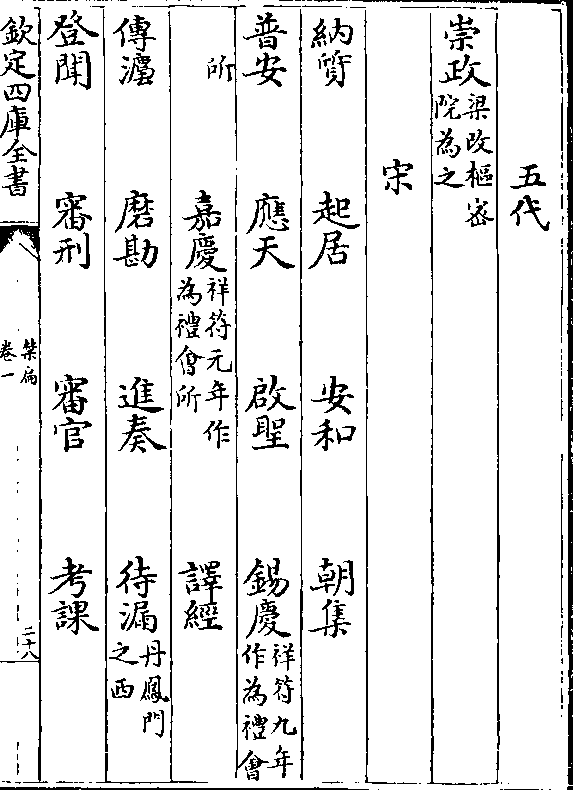 五代
崇政 梁改樞宻院為之
宋
納質 起居 安和 朝集
普安 應天 啟聖 錫慶 祥符九年作為禮會
所 嘉慶 祥符元年作為禮會所 譯經
傳灋 磨勘 進奏 待漏 丹鳳門之西
登聞 審刑 審官 考課
欽定四庫全書
禁扁
卷一
二十八